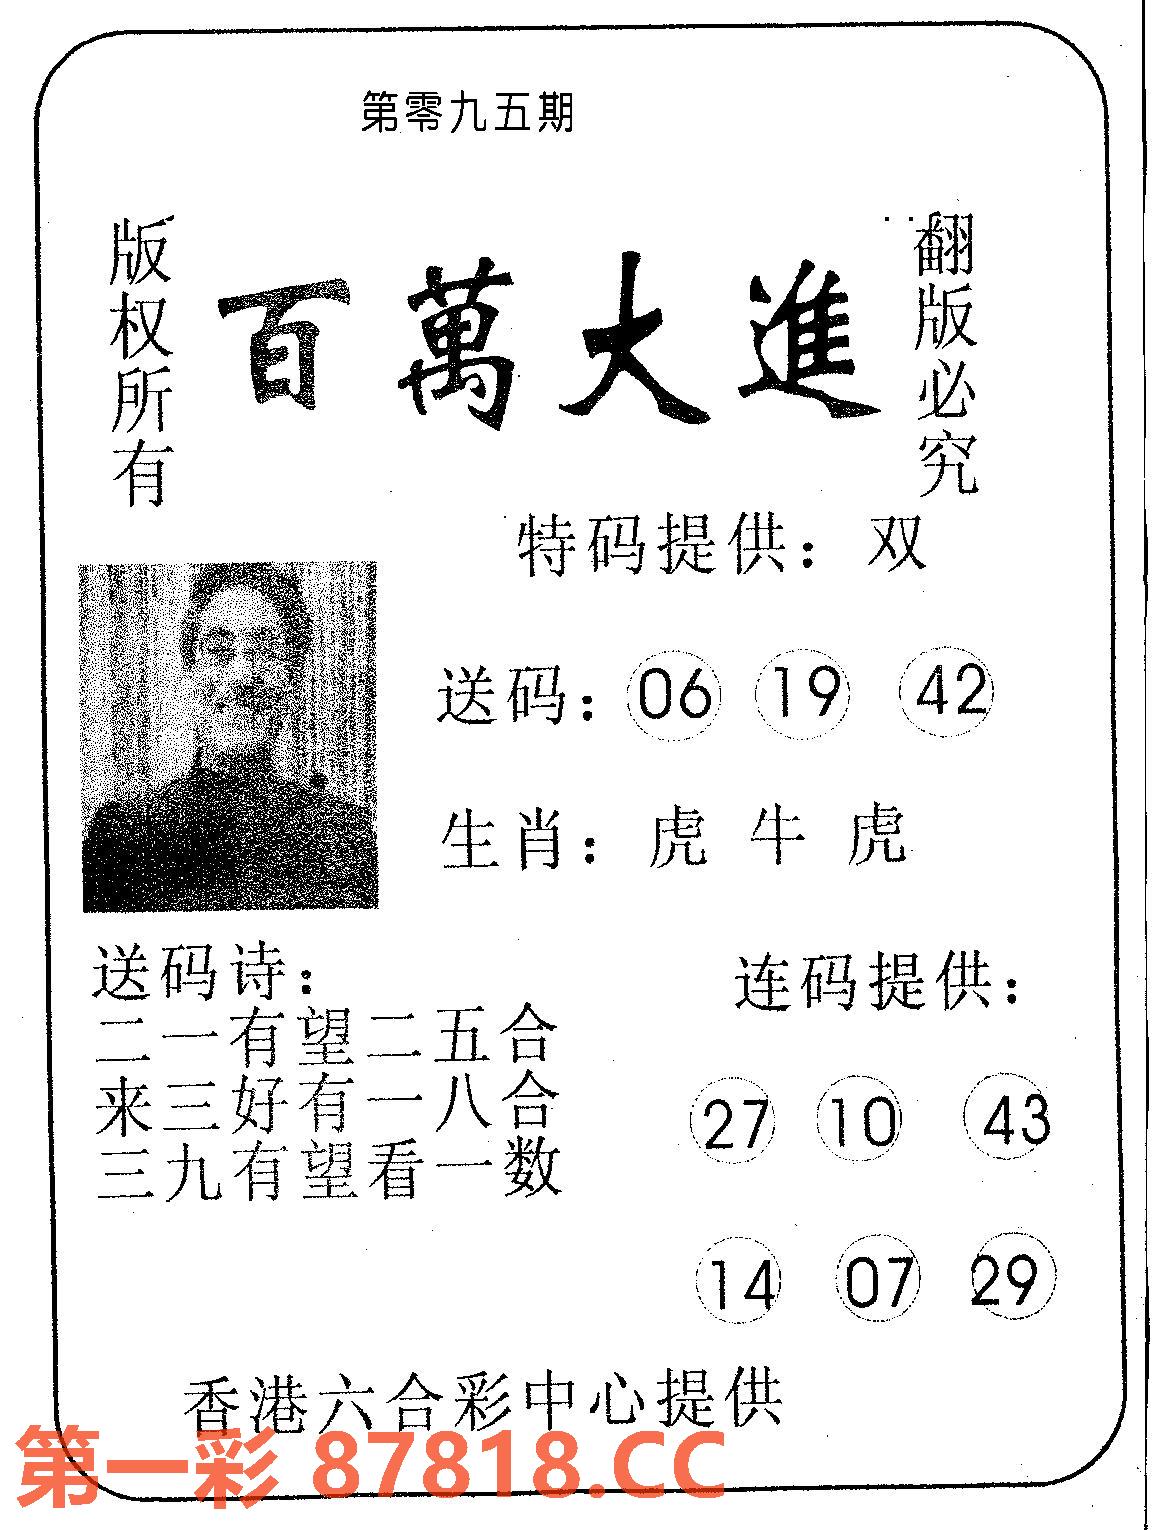 第零九五期
版权所有
百萬大進
翻版必究
特码提供：双
送码：06 19 42
生肖：虎 牛 虎
送码诗：
二一有望二五合
来三好有一八合
三九有望看一数
连码提供：
27 10 43
14 07 29
香港六合彩中心提供
第一彩 87818.CC